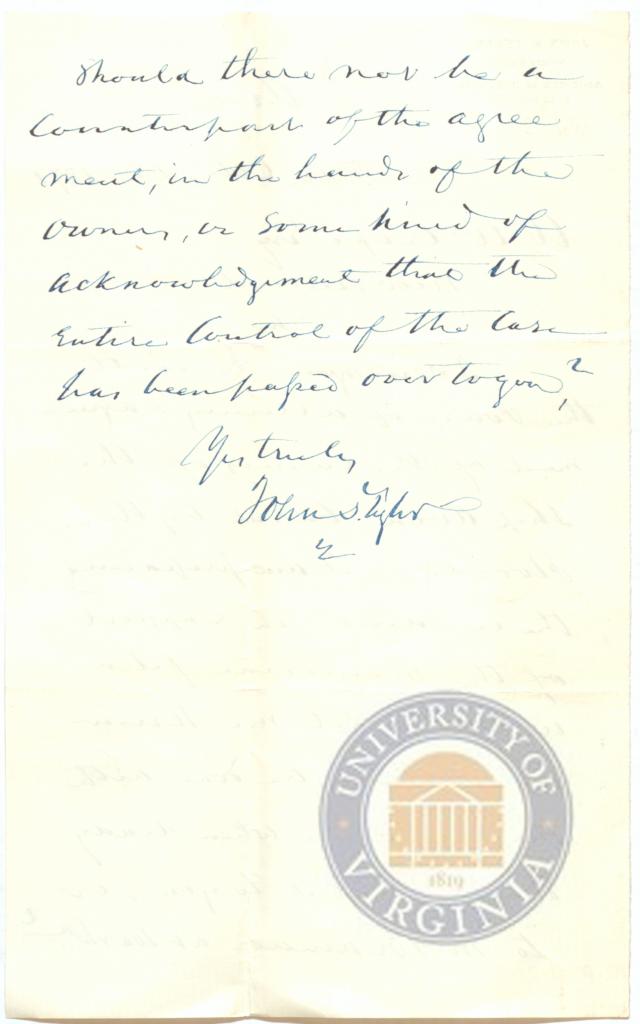 Should there not be a
Counterpart of the agree
ment, in the hands of the
owners, or some kind of
acknowledgement that the
Entire Control of the Case
has been passed over to you?
Yrs truly
John S. Tyler
UNIVERSITY OF
VIRGINIA
1819